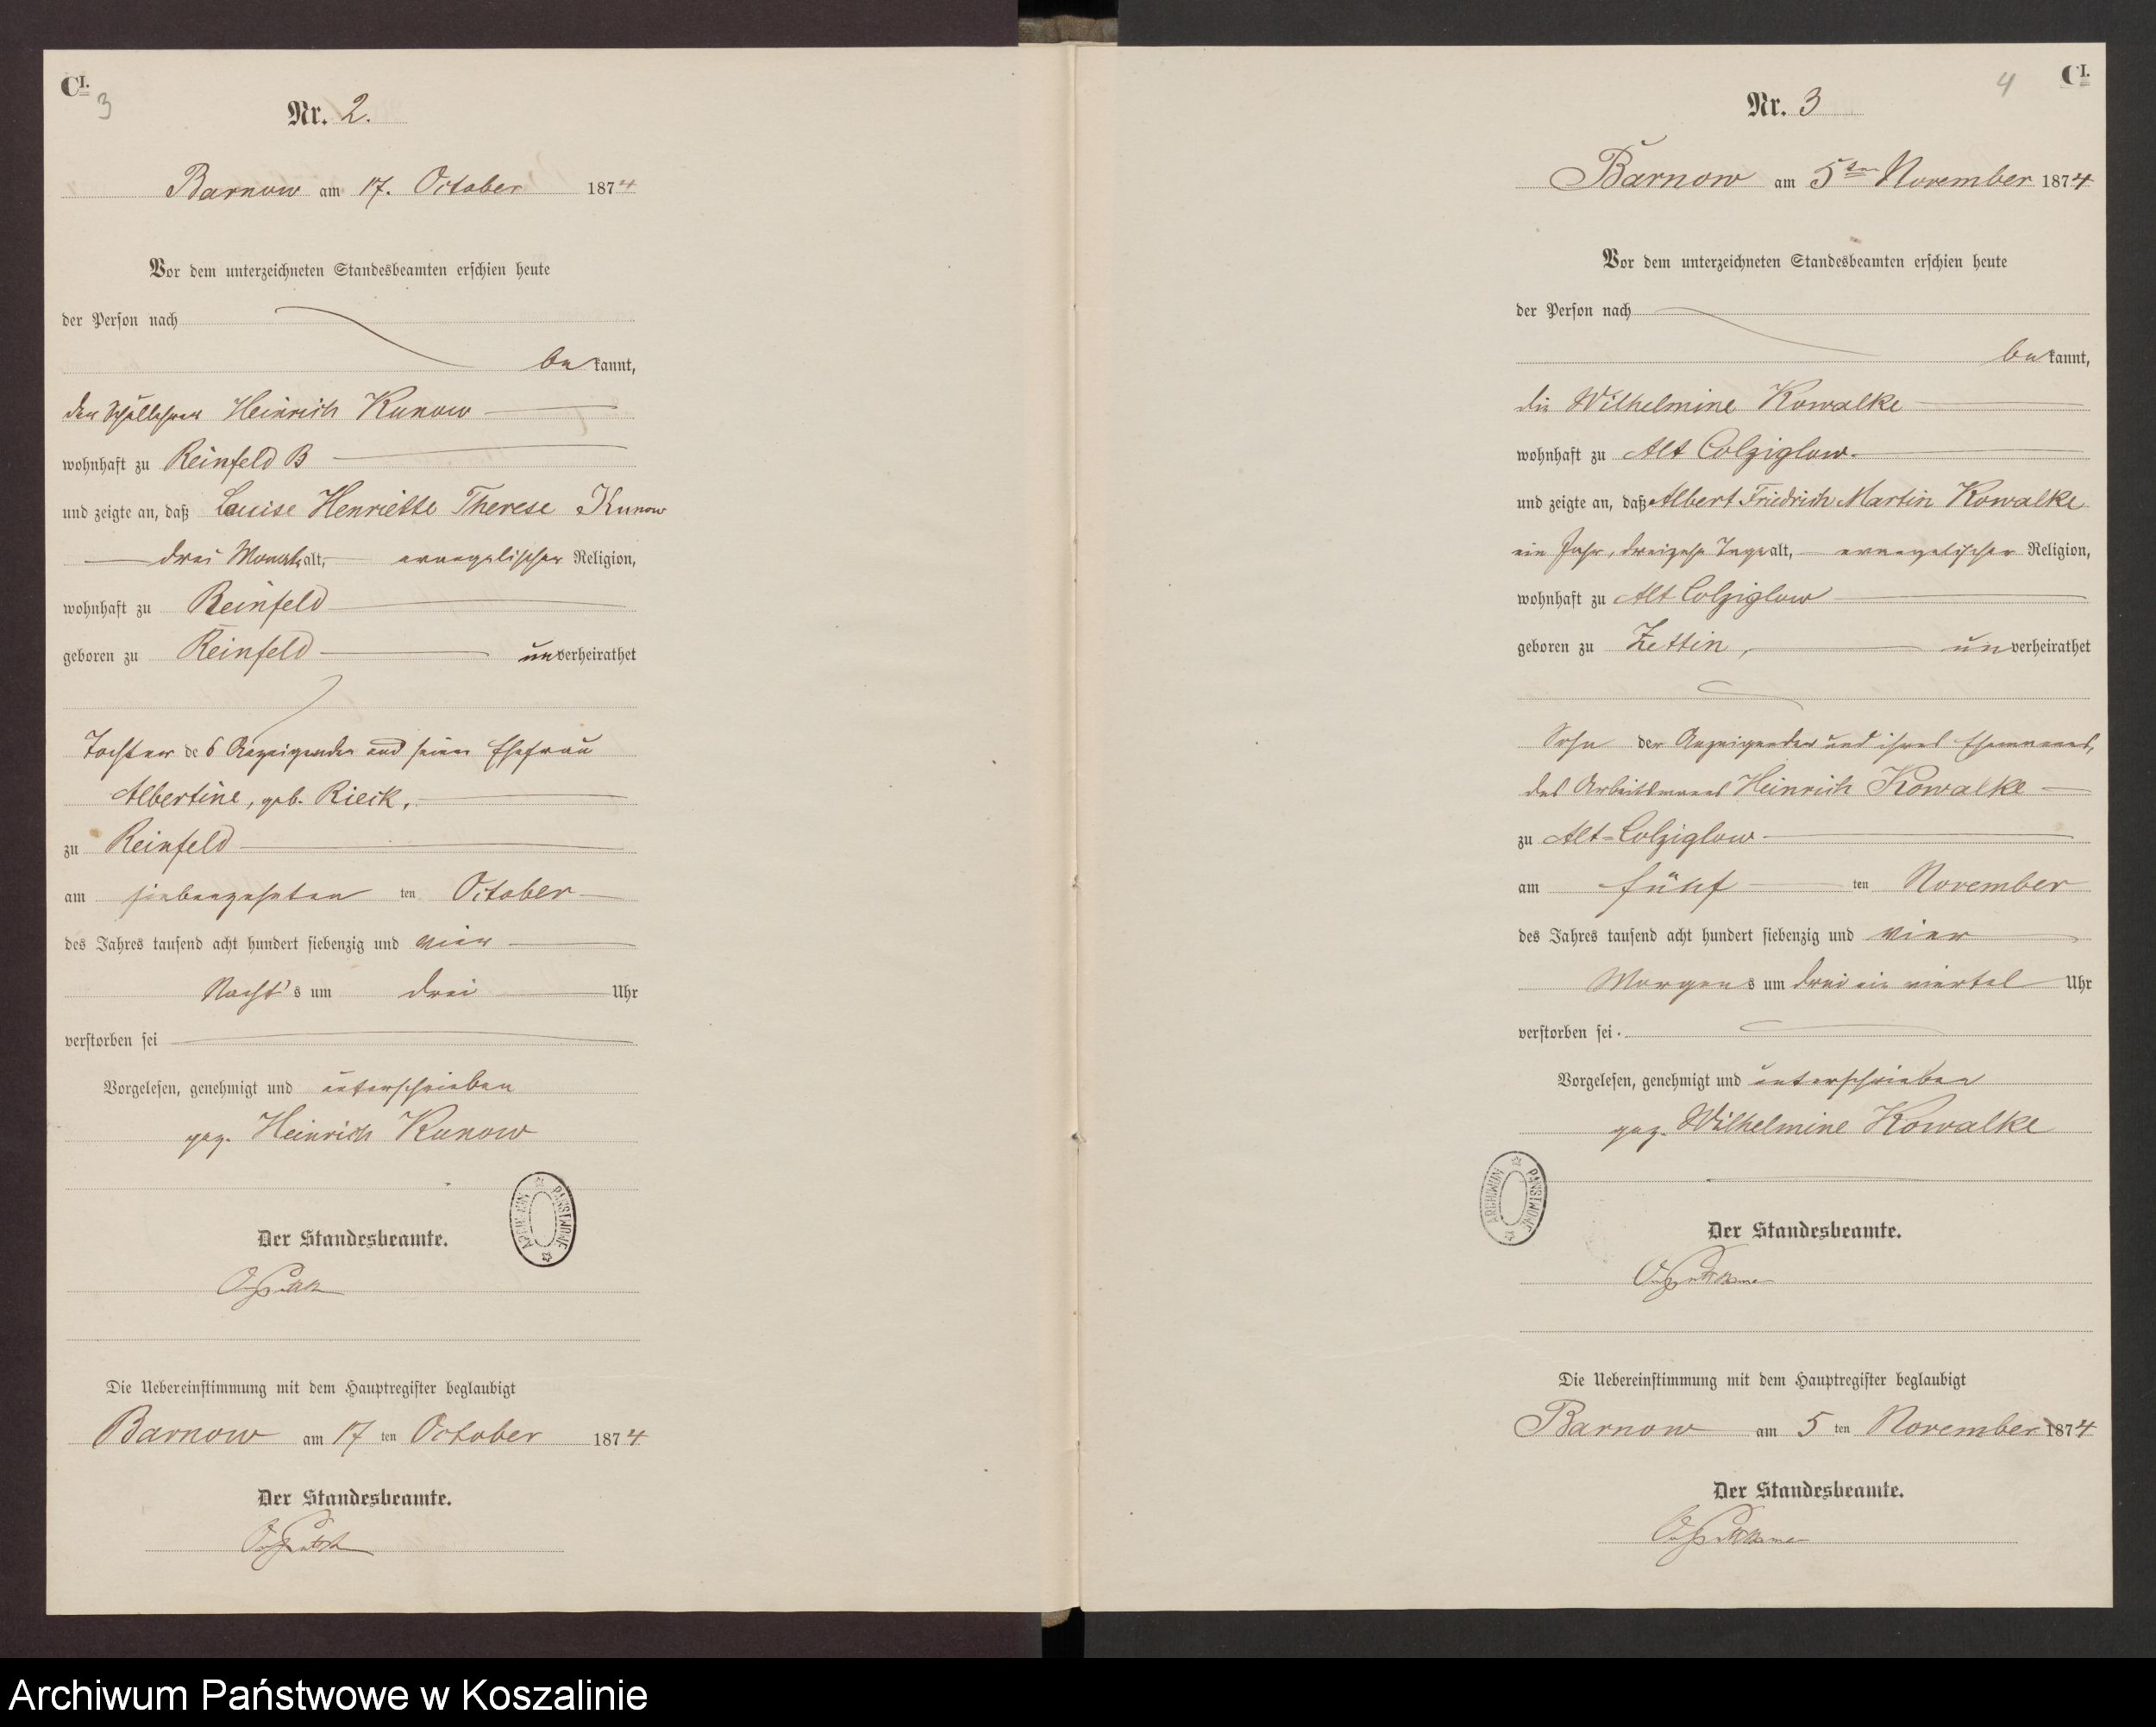 C I.
3
Nr. 2.
Barnow am 17. October 1874
Vor dem unterzeichneten Standesbeamten erschien heute
der Person nach
bekannt,
der Schullehrer Heinrich Kunow
wohnhaft zu Reinfeld B
und zeigte an, daß Louise Henriette Therese Kunow
drei Monat alt, evangelischer Religion,
wohnhaft zu Reinfeld
geboren zu Reinfeld unverheirathet
Tochter des Anzeigenden und seiner Ehefrau
Albertine, geb. Rieck,
zu Reinfeld
am siebenzehnten ten October
des Jahres tausend acht hundert siebenzig und vier
Nacht's um drei Uhr
verstorben sei
Vorgelesen, genehmigt und unterschrieben
gez. Heinrich Kunow
ARCHIWUM PAŃSTWOWE
Der Standesbeamte.
Die Uebereinstimmung mit dem Hauptregister beglaubigt
Barnow am 17 ten October 1874
Der Standesbeamte.
4
C I.
Nr. 3
Barnow am 5ten November 1874
Vor dem unterzeichneten Standesbeamten erschien heute
der Person nach
bekannt,
die Wilhelmine Kowalke
wohnhaft zu Alt Colziglow.
und zeigte an, daß Albert Friedrich Martin Kowalke
ein Jahr, dreizehn Tage alt, evangelischer Religion,
wohnhaft zu Alt Colziglow
geboren zu Zettin, unverheirathet
Sohn der Anzeigenden und ihres Ehemannes,
des Arbeitsmanns Heinrich Kowalke
zu Alt-Colziglow
am fünf ten November
des Jahres tausend acht hundert siebenzig und vier
Morgens um drei ein viertel Uhr
verstorben sei.
Vorgelesen, genehmigt und unterschrieben
gez. Wilhelmine Kowalke
ARCHIWUM PAŃSTWOWE
Der Standesbeamte.
Die Uebereinstimmung mit dem Hauptregister beglaubigt
Barnow am 5 ten November 1874
Der Standesbeamte.
Archiwum Państwowe w Koszalinie